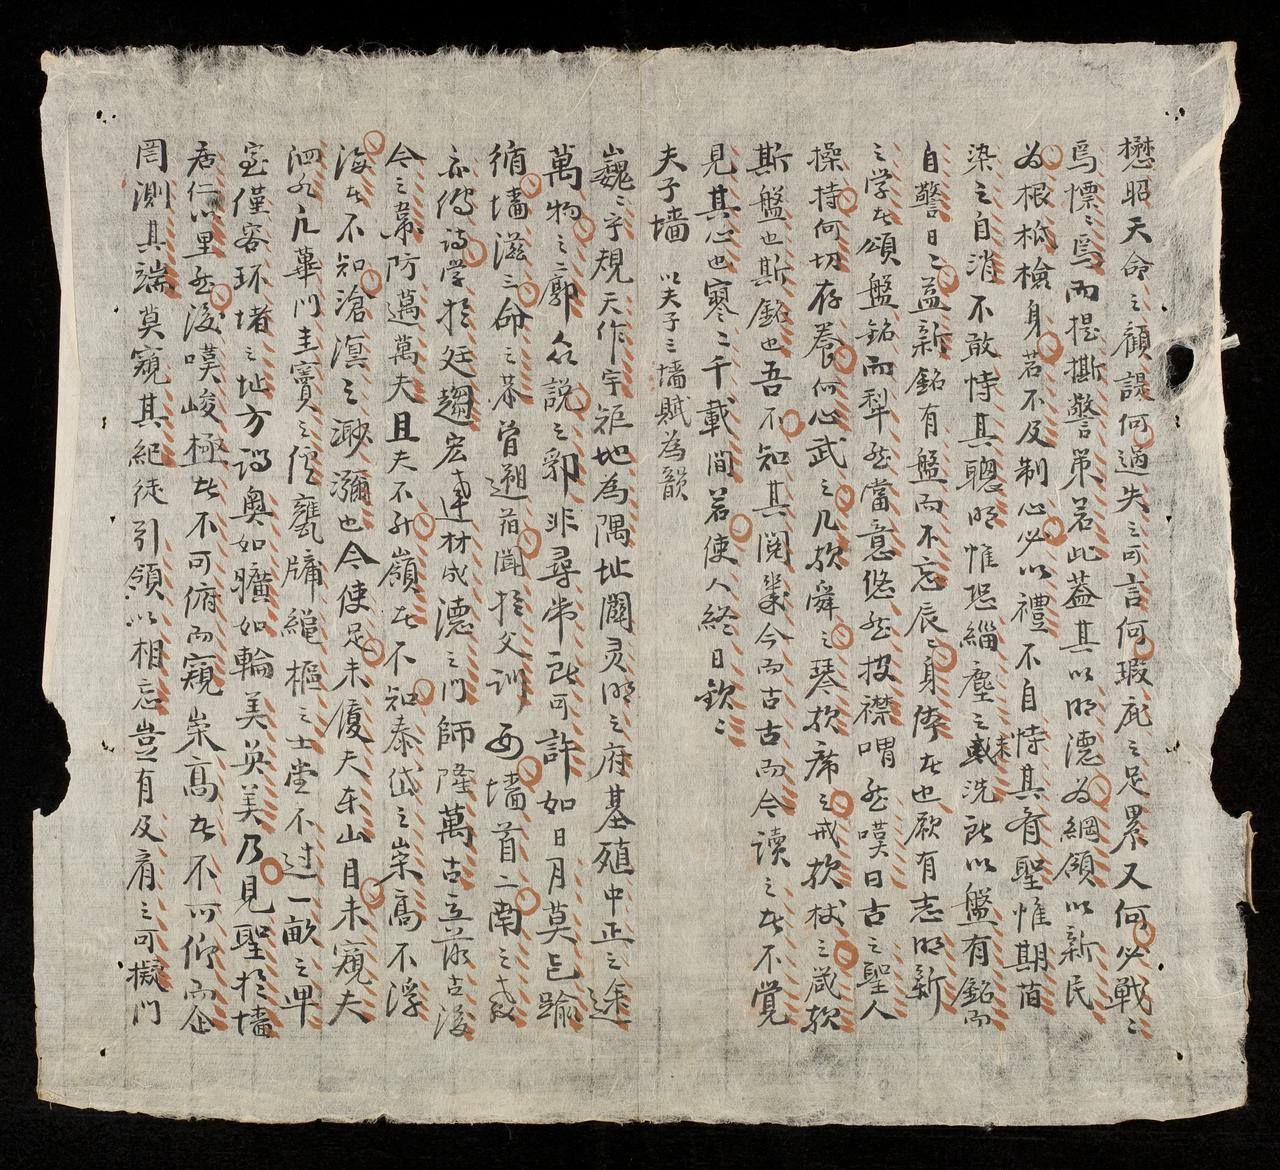 懋昭天命之顧諟何過失之可言何瑕疵之足累又何必戰〻
焉慄〻焉而提撕警策若此蓋其以明德為綱領以新民
為根柢檢身若不及制心必以禮不自恃其睿聖惟期旧
染之自消不敢恃其聰明惟恐緇塵之未洗所以盤有銘而
自警曰〻益新銘有盤而不忘辰〻身俸在也厥有志明新
之学者頌盤銘而犁然當意悠然披襟喟然嘆曰古之聖人
操持何切存養何心武之几歟舜之琴歟席之戒歟杖之箴歟
斯盤也斯銘也吾不知其閱幾今而古古而今讀之者不覚
見其心也寥〻千載間若使人終日欽〻
夫子墻 以夫子之墻賦為韻
巍〻乎規天作宇矩地為隅址闢灵明之府基殖中正之途
萬物之廓众說之郛非尋常所可許如日月莫乞踰
循墻滋三命之恭曾遡旧聞於父訓面墻首二南之戒
亦傳詩学於廷趨宏達材成德之門師隆萬古立前古後
今之幕防邁萬夫且夫不升嶺者不知泰岱之崇高不浮
海者不知滄溟之渺瀰也今使足未履夫东山目未窺夫
泗水几蓽門圭竇之儒甕牖繩樞之士堂不过一畝之卑
室僅容环堵之址方謂奧如曠如輪美奐美乃見聖於墻
居仁以里然後嘆峻極者不可俯而窺崇高者不可仰而企
罔測其端莫窺其紀徒引領以相忘豈有及肩之可擬門